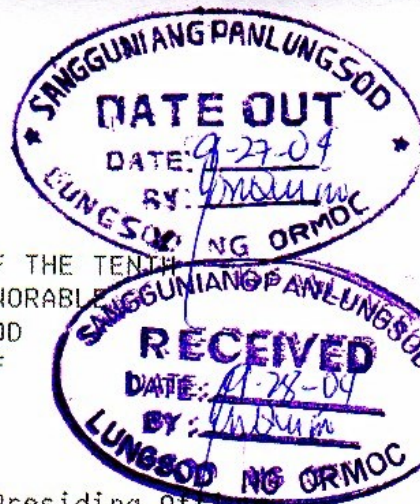 SANGGUNIANG PANLUNGSOD
DATE OUT
DATE: 9-27-04
BY:
LUNGSOD NG ORMOC
F THE TENTH
NORABLE
OD
SANGGUNIANG PANLUNGSOD
RECEIVED
DATE: -28-04
BY:
LUNGSOD NG ORMOC
Presiding